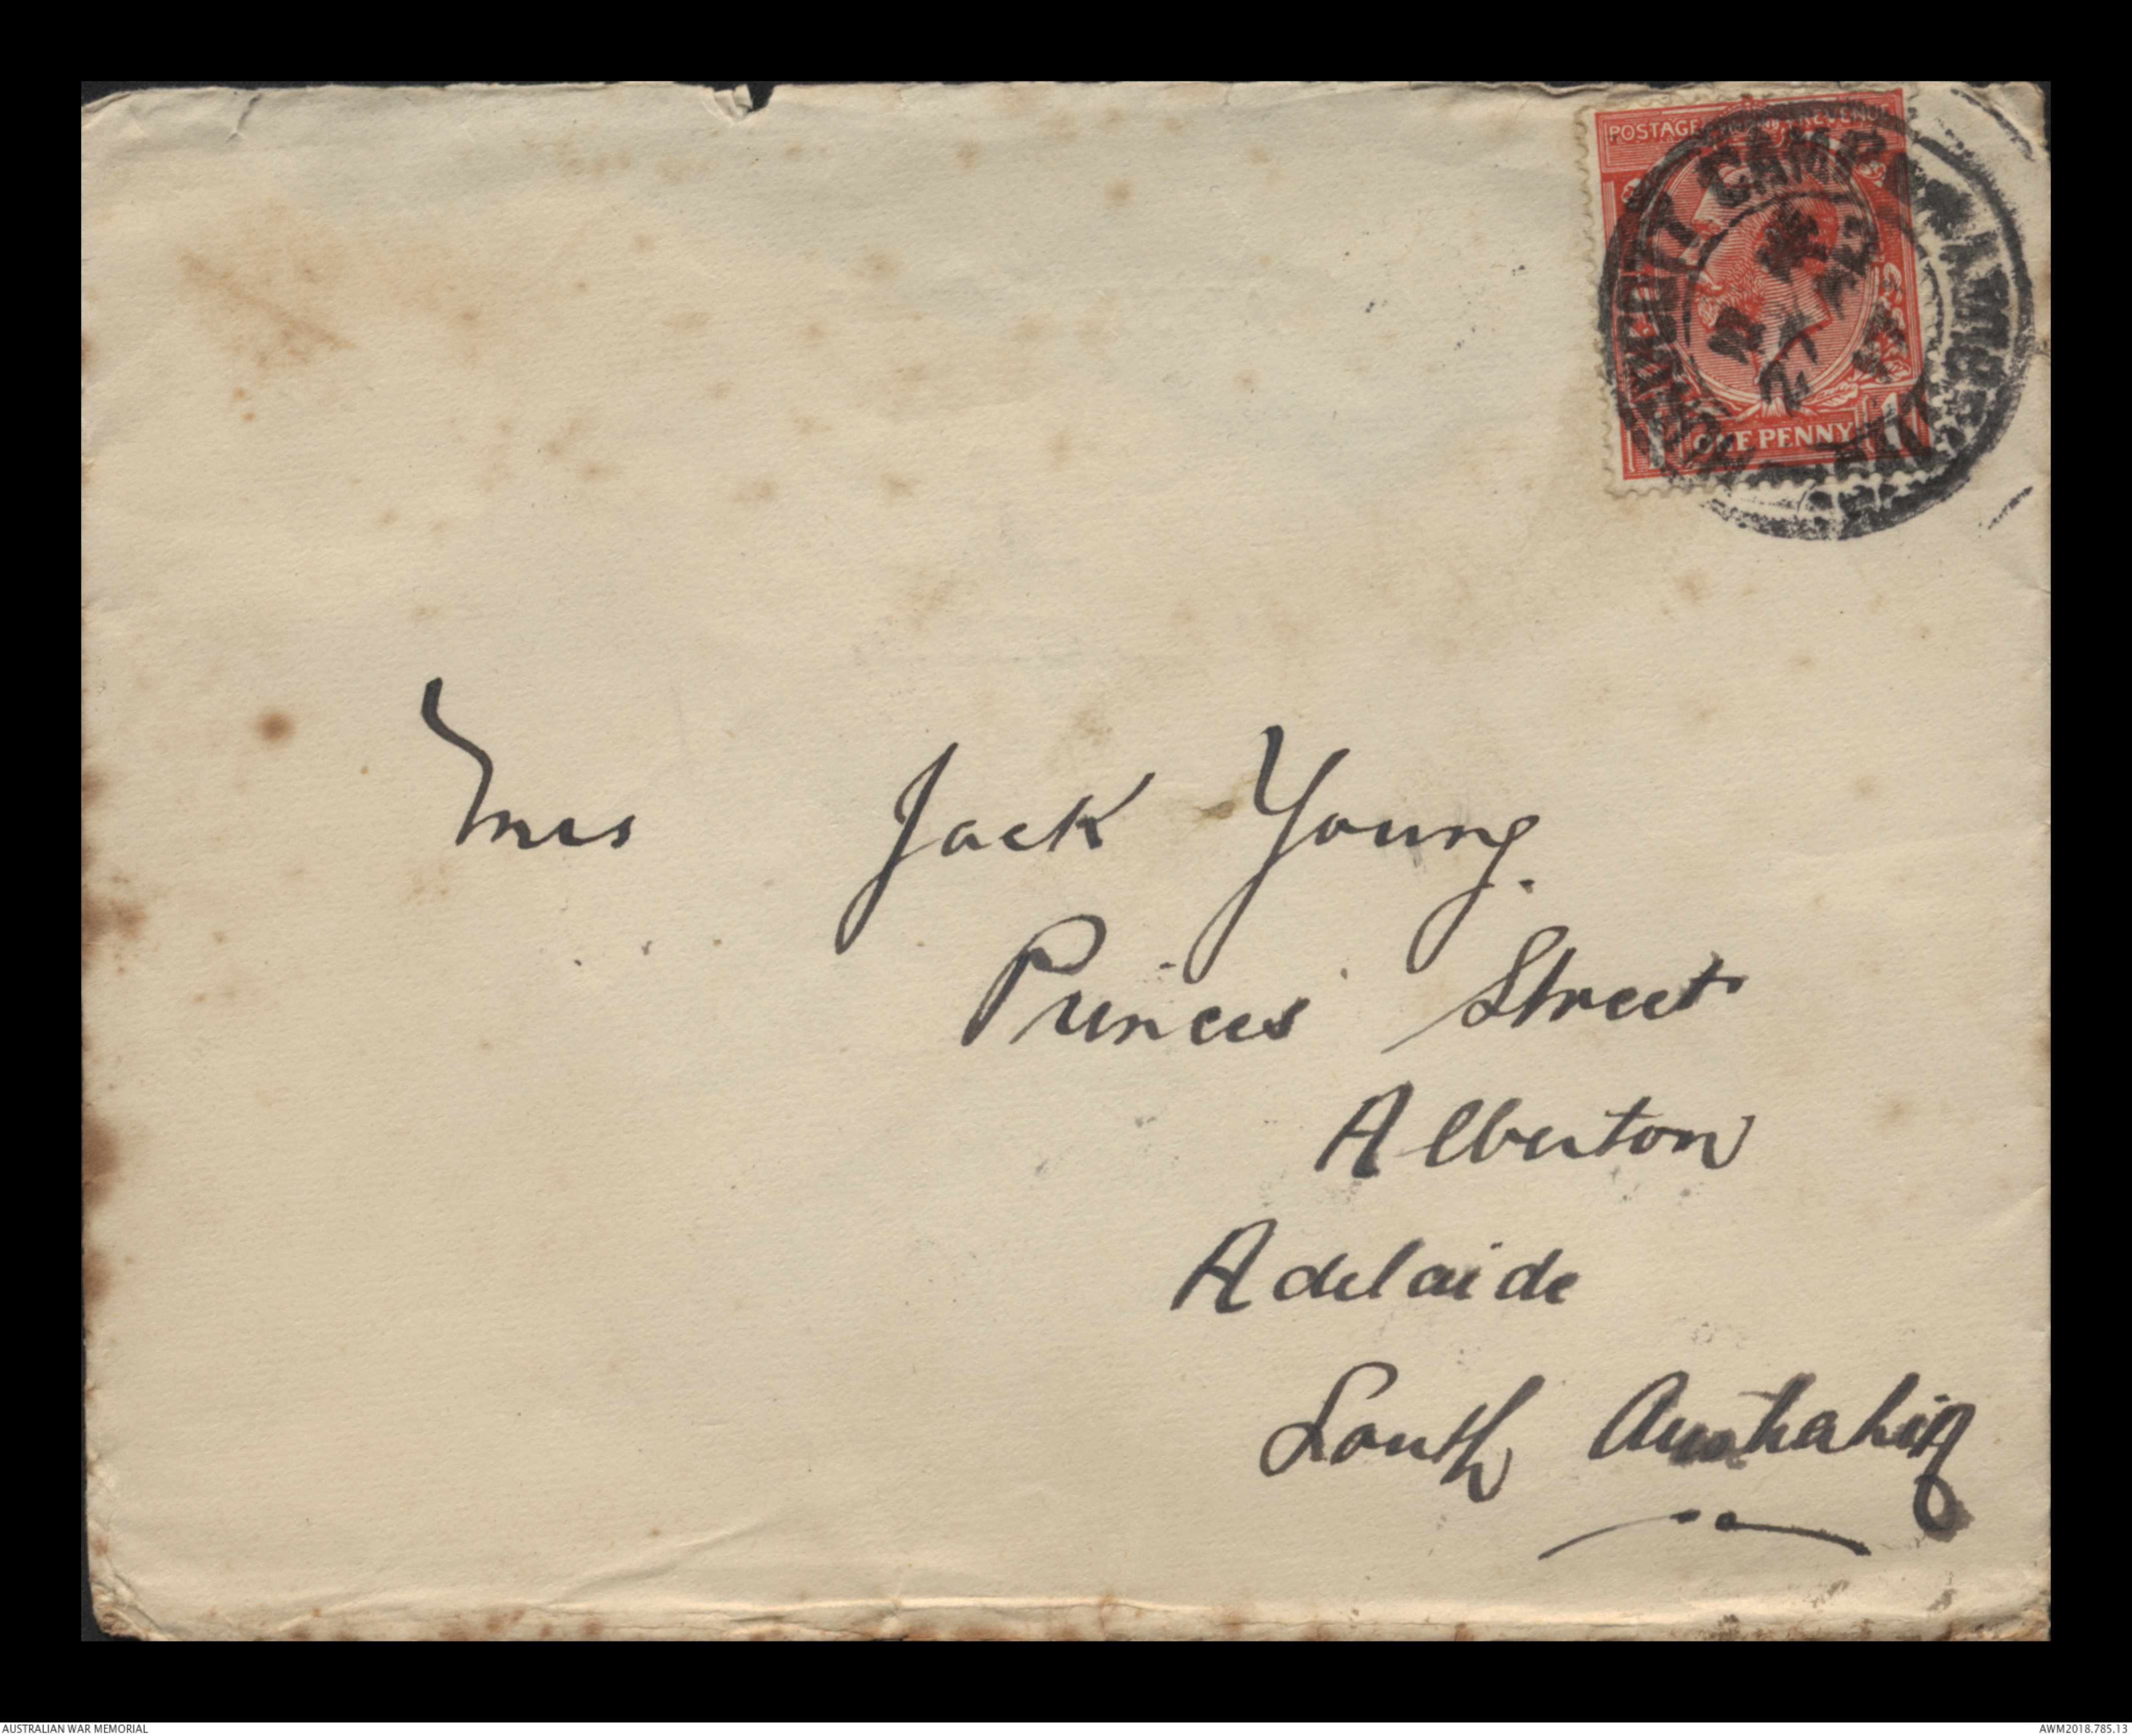 POSTAGE REVENUE
CAMP
ONE PENNY
Mrs Jack Young.
Princes Street
Alberton
Adelaide
South Australia
AUSTRALIAN WAR MEMORIAL
AWM2018.785.13